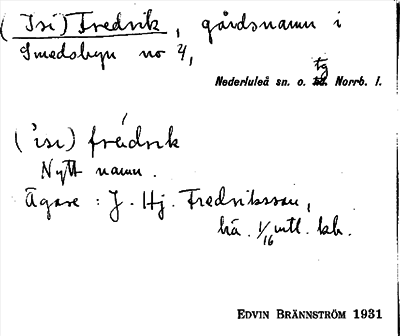 (Isi) Fredrik, gårdsnamn i
Smedsbyn no 4,
Nederluleå sn. o. tg Norrb. l.
('isi) fréidrik
Nytt namn.
Ägare : J. Hj. Fredriksson,
hä. 1/16 mtl. kh.
EDVIN BRÄNNSTRÖM 1931